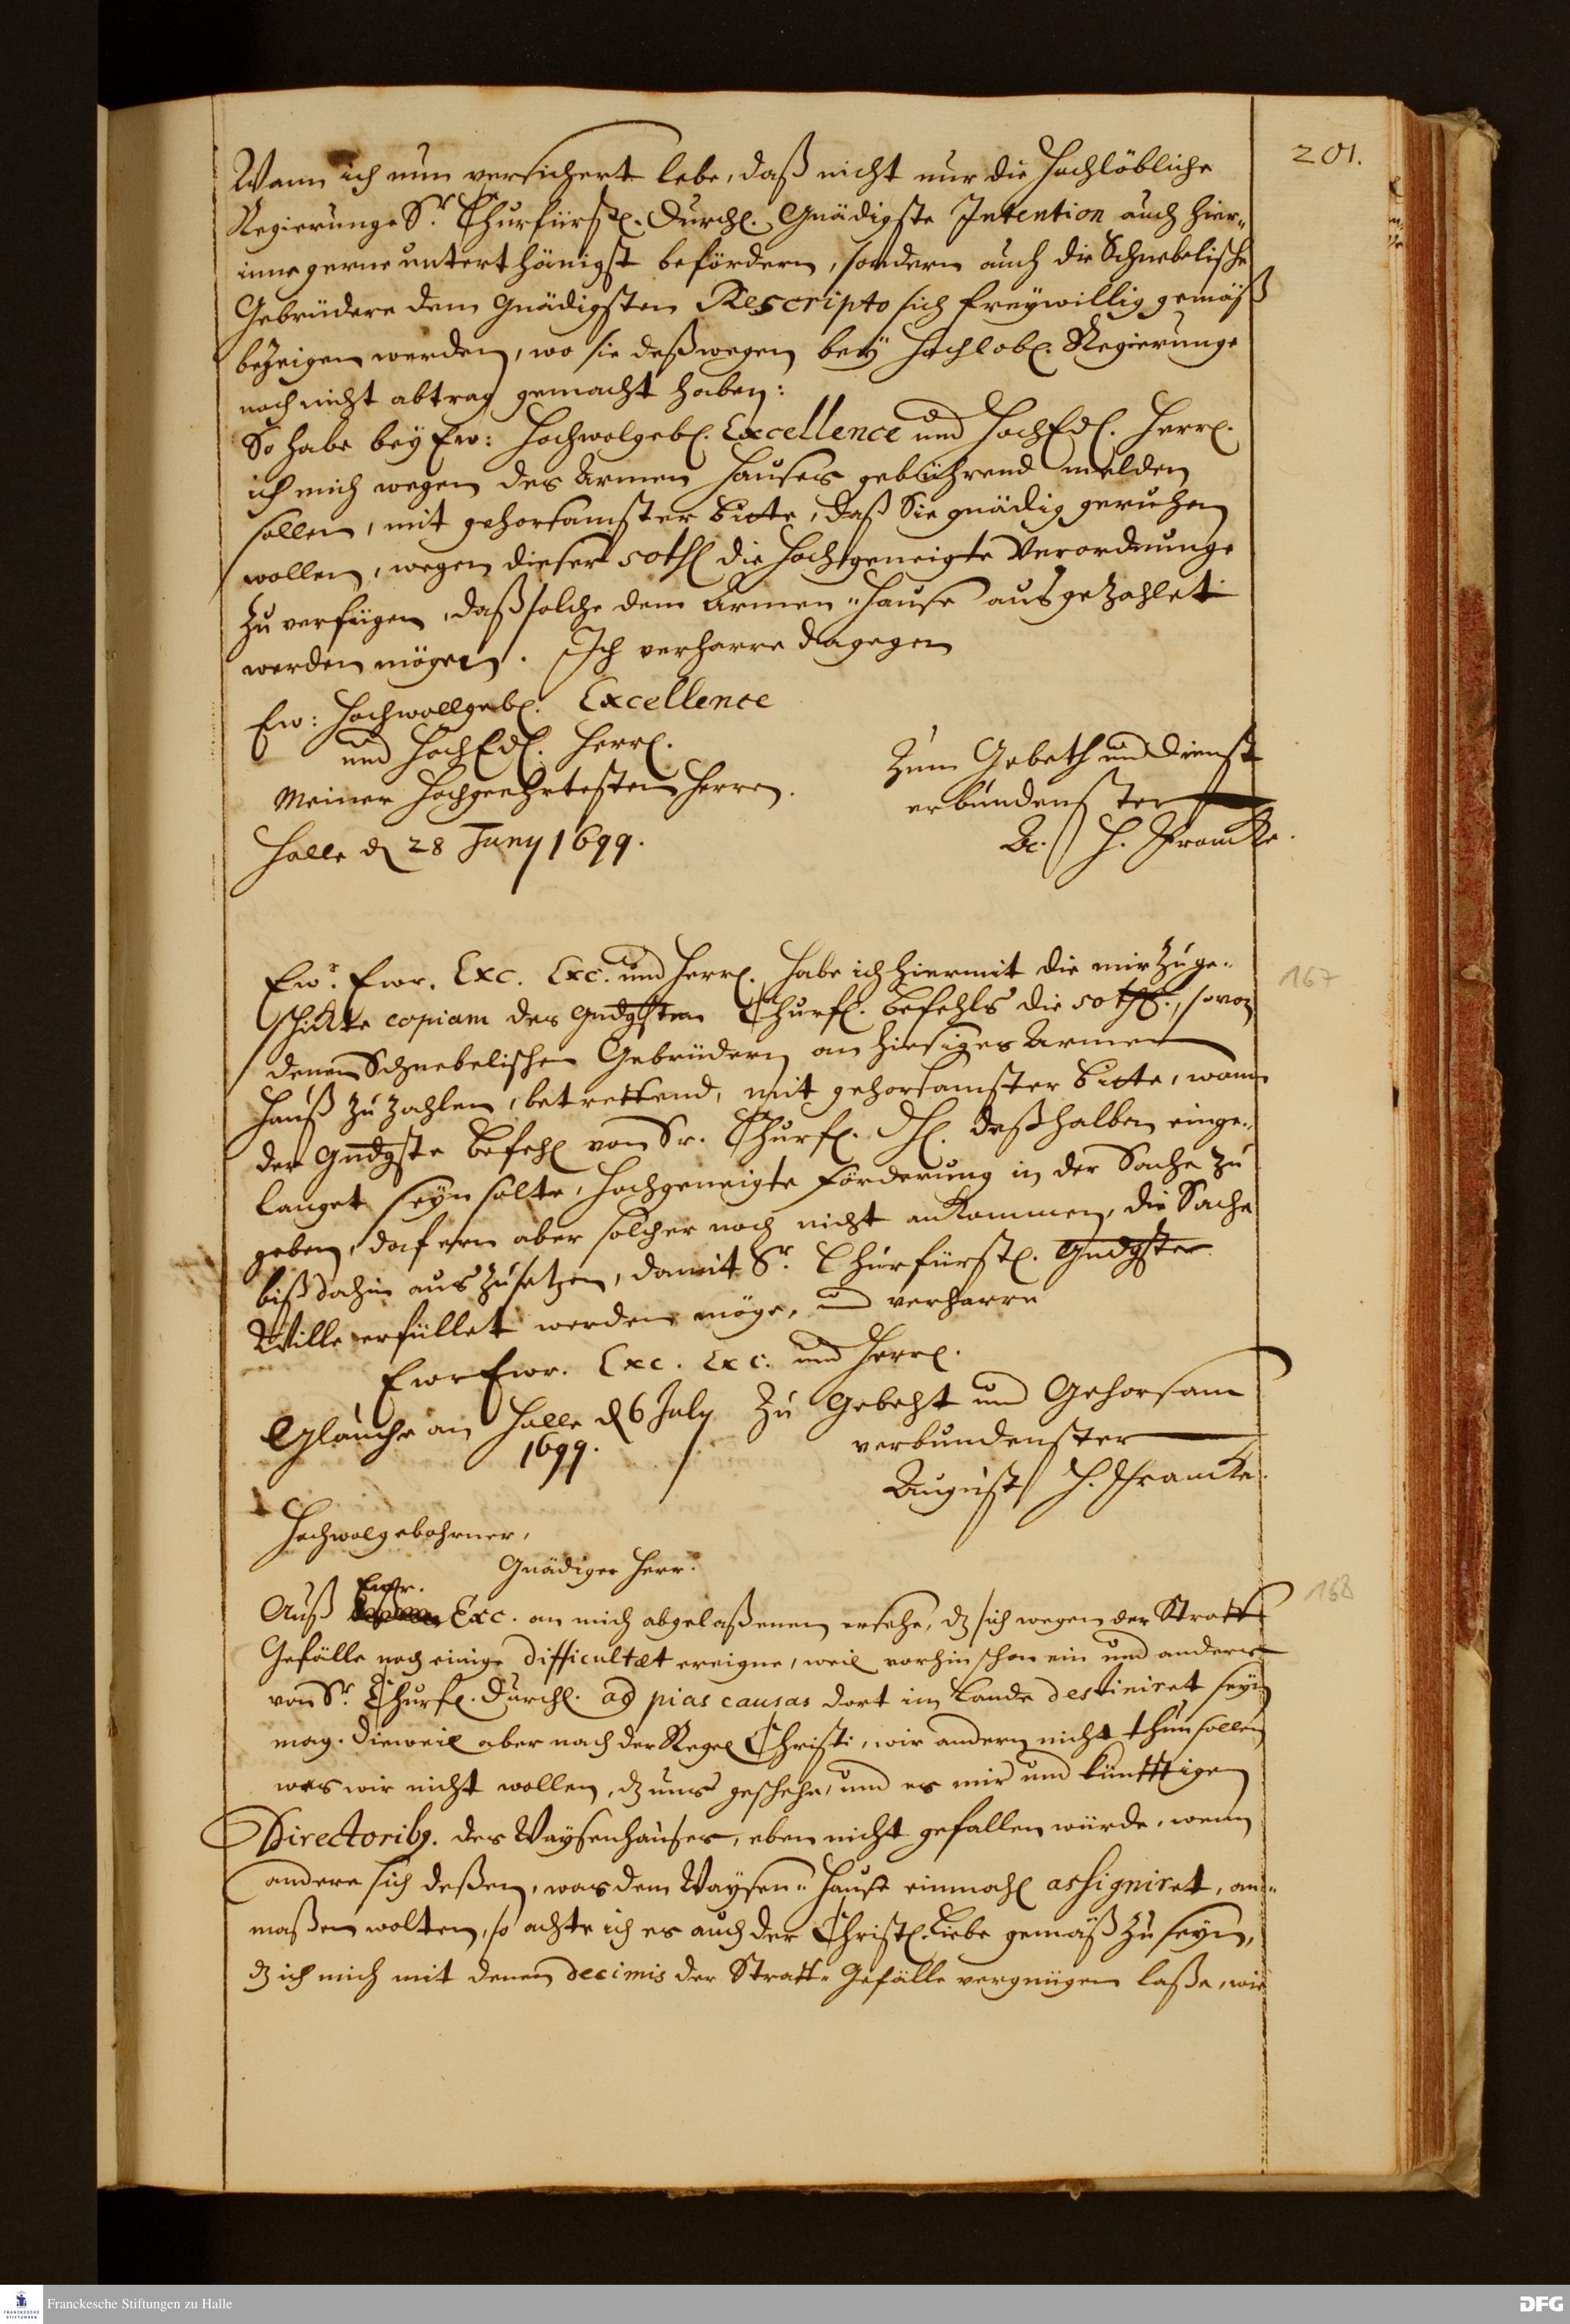 201.
Wann ich nun versichert lebe, daß nicht nur die Hochlöbliche
Regierunge Sr. Churfürstl. Durchl. Gnädigste Intention auch hier„
inne gerne unterthänigst befördern, sondern auch die Schnebelische
Gebrüdere dem Gnädigsten Rescripto sich freywillig gemäß
bezeigen werden, wo sie deßwegen bey Hochlobl. Regierunge
noch nicht abtrag gemacht haben:
So habe bey Ew: Hochwolgebl. Excellence und HochEdl. Herrl.
ich mich wegen des Armen Hauses gebührend melden
sollen, mit gehorsamster Bitte, daß Sie gnädig geruhen
wollen, wegen dieser 50 thl die Hochgeneigte Verordnunge
zu verfügen, daß solche dem Armen„Hause ausgezahlet
werden mögen. Ich verharre dagegen
Ew: Hochwollgebl. Excellence
und HochEdl. Herrl.
Meiner Hochgeehrtesten Herren.
Zum Gebeth und Dienst
erbundenster
Halle d 28 Juny 1699.
A. H. Francke.
167
Ewr. Ewr. Exc. Exc. und Herrl. habe ich hiermit die mir zuge„
schickte copiam des Gndgsten Churfl. Befehls die 50 thl., so von
denen Schnebelischen Gebrüdern an hiesiges Armen
Hauß zu zahlen, betreffend, mit gehorsamster Bitte, wann
der Gndgste Befehl von Sr. Churfl. Dhl. deßhalben einge„
langet seyn solte, Hochgeneigte Förderung in der Sache zu
geben, dafern aber solcher noch nicht ankommen, die Sache
biß dahin auszusetzen, damit Sr. Churfürstl. Gndgster
Wille erfüllet werden möge, und verharre
Ewr Ewr. Exc. Exc. und Herrl.
Glaucha an Halle d 6 July
1699.
Zu Gebeht und Gehorsam
verbundenster
August H. Francke.
Hochwolgebohrner,
Gnädiger Herr.
168
Ewr.
Auß Exc. an mich abgelaßenen ersehe, dz sich wegen der Straff
Gefälle noch einige difficultæt ereigne, weil vorhin schon ein und anderes
von Sr. Churfl. Durchl. ad pias causas dort im Lande destiniret seyn
mag. Dieweil aber nach der Regel Christi, wir andern nicht thun sollen
was wir nicht wollen, dz uns geschehe, und es mir und künfftigen
Directoribg. des Waysenhauses, eben nicht gefallen würde, wenn
andere sich deßen, was dem Waysen„Hause einmahl assigniret, an„
maßen wolten, so achte ich es auch der Christl. Liebe gemäß zu seyn,
dz ich mich mit denen decimis der Straff„Gefälle vergnügen laße, wie
Franckesche Stiftungen zu Halle
FRANCKESCHE STIFTUNGEN
DFG